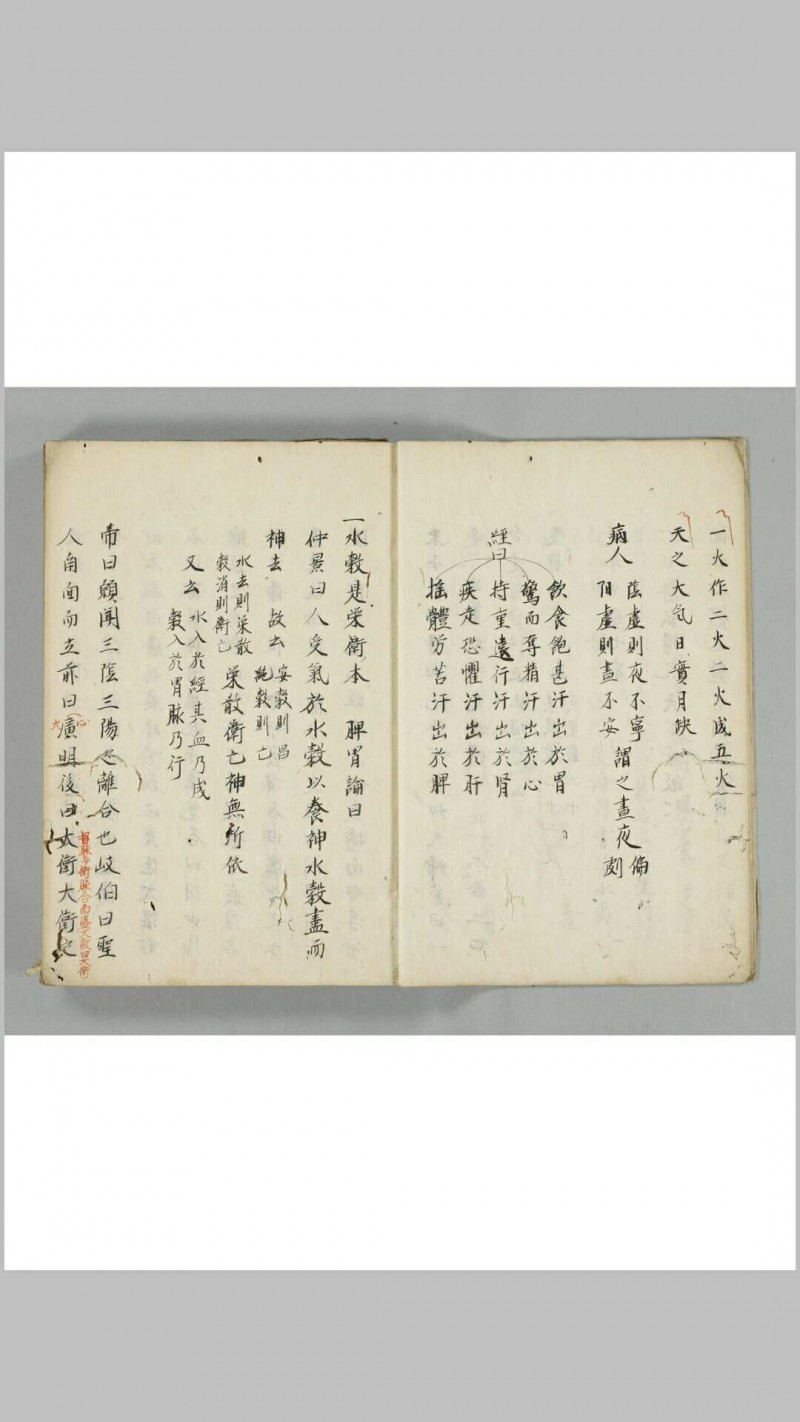 一火作二火二火成五火
天之大氣日實月缺
病人
陰虛則夜不寧
陽虛則晝不安
謂之晝夜偏
劇
經曰
飲食飽甚汗出於胃
驚而奪精汗出於心
持重遠行汗出於肾
疾走恐懼汗出於肝
搖體労苦汗出於脾
一水穀是栄衛本 脾胃論曰
仲景曰人受氣於水穀以養神水穀盡而
神去 故云
安穀則昌
絶穀則亡
水去則栄散
穀消則衛亡
栄散衛亡神無所依
又云
水入於經其血乃成
穀入於胃脉乃行
帝曰願聞三陰三陽之離合也岐伯曰聖
人南面而立前曰廣明後曰太衝大衝之
心
大
腎脉与衝脉合而盛大故曰大衝